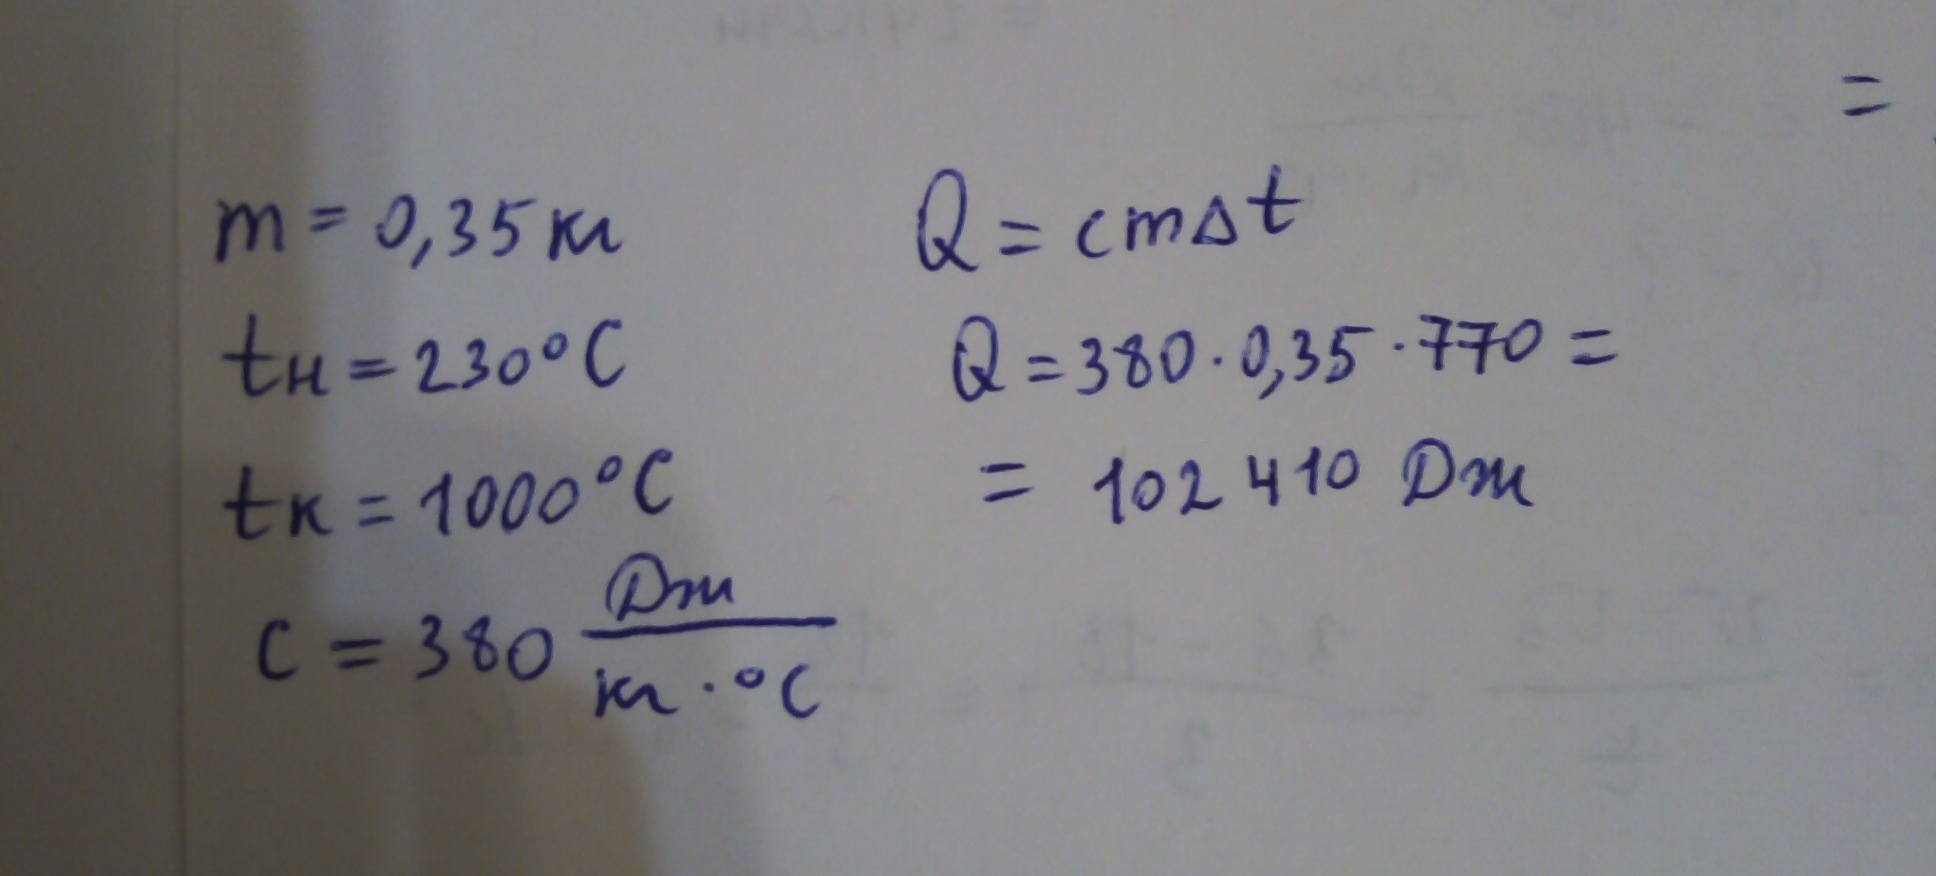 m = 0,35 кг
tн = 230°C
tк = 1000°C
c = 380 Дж / кг · °C
Q = cmΔt
Q = 380 · 0,35 · 770 =
= 102 410 Дж
=